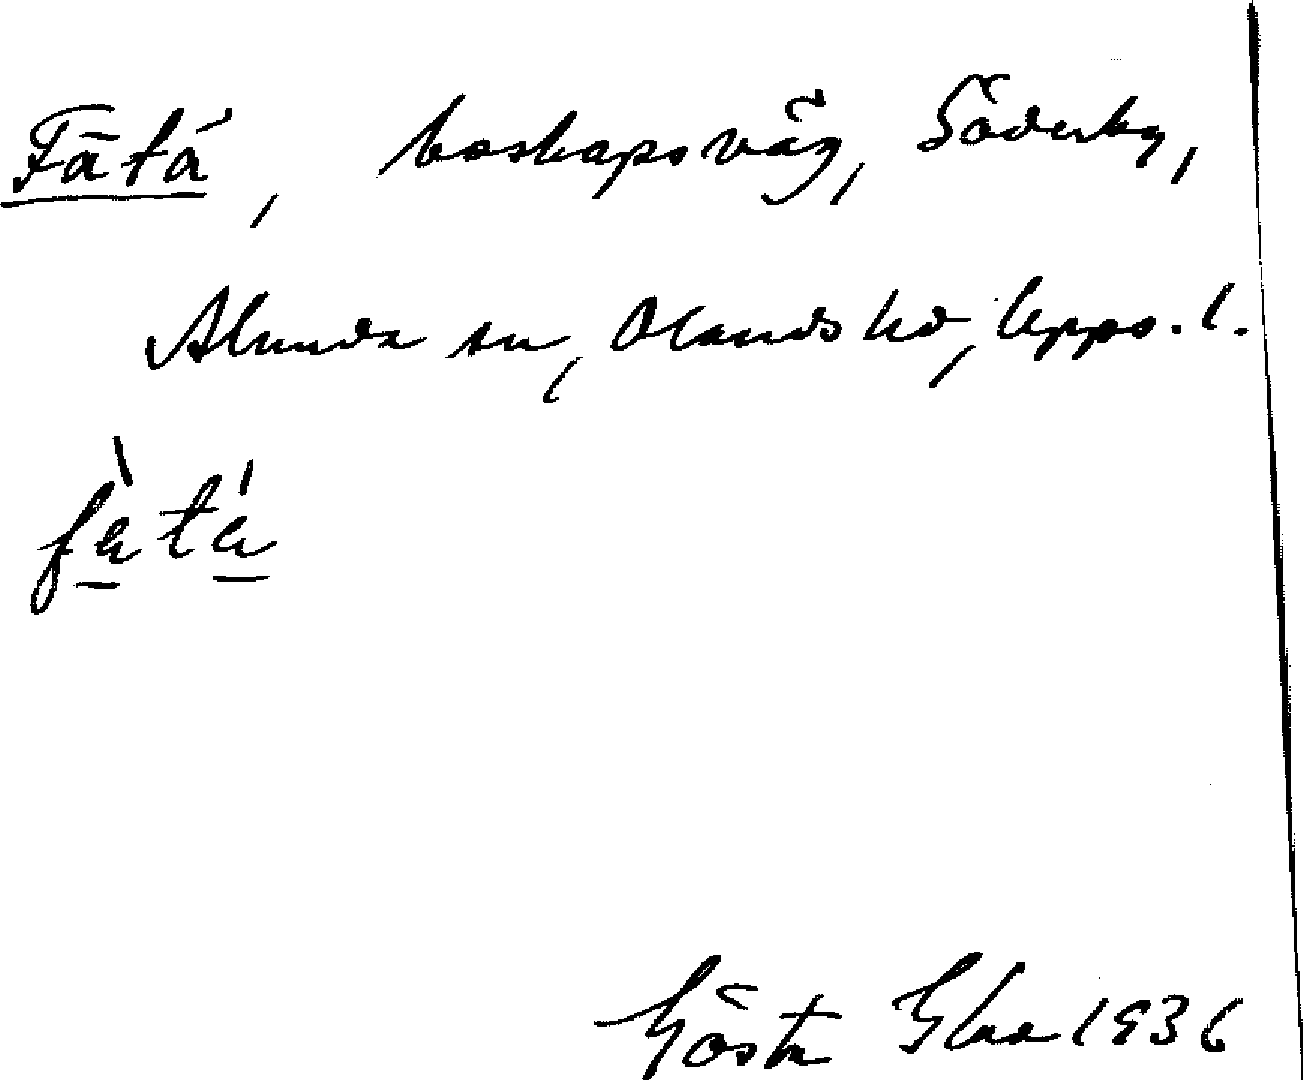 Fätå, boskapsväg, Söderby,
Alunda sn, Olands hd, Upps. l.
fà̱tá̱
Gösta 1936